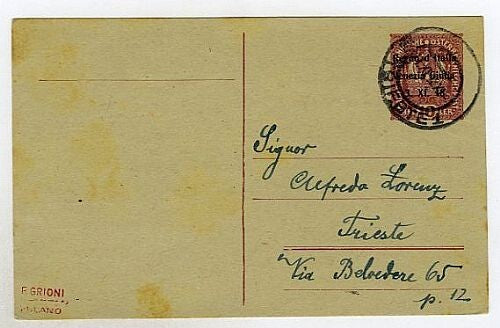 Regno d'Italia
Venezia Giulia
3. XI. 18.
TRIESTE 1
Signor
Alfredo Lorenz
Trieste
Via Belvedere 65
p. 12
E. GRIONI
MILANO